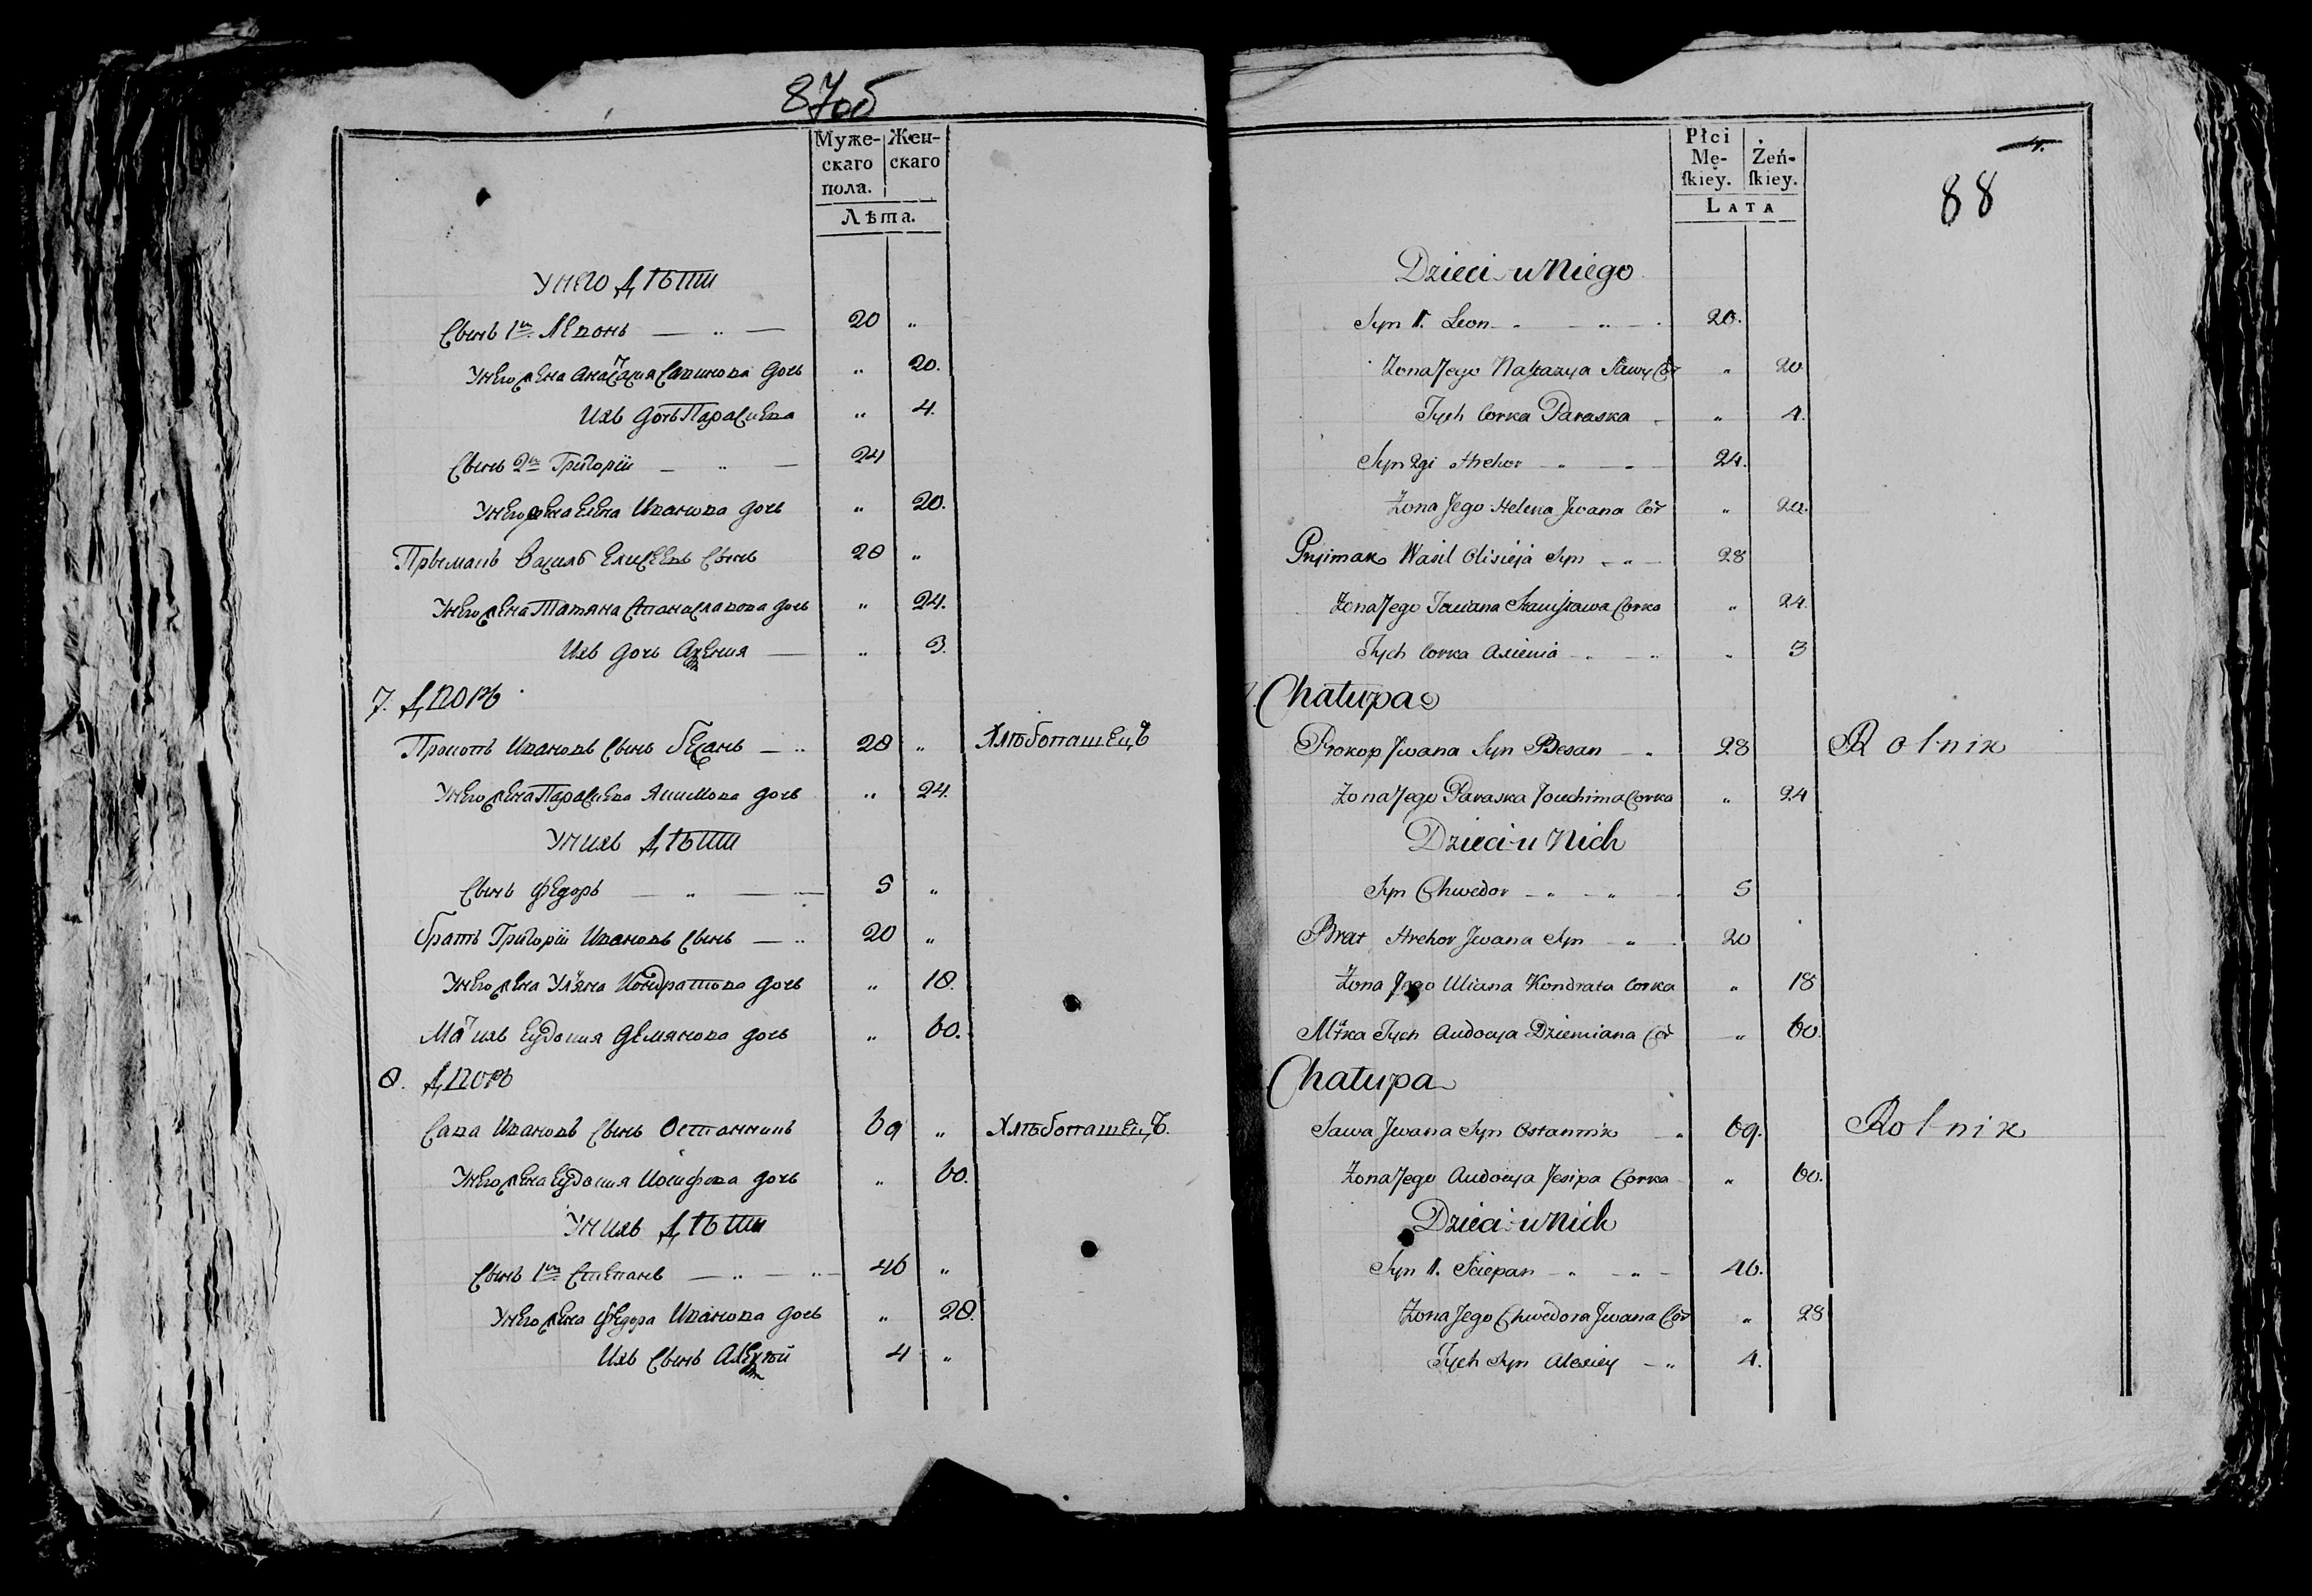 87об
Муже-
скаго
пола.
Жен-
скаго
Лѣта.
У него Дѣти
Сынъ 1й Левонъ — „ — 20 „
У него жена Анастасия Савинова дочь „ 20.
Ихъ дочь Парасцева „ 4.
Сынъ 2й Григорiй — „ — 24
У него жена Елена Иванова дочь „ 20.
Прымакъ Василь Елисеевъ сынъ 28 „
У него жена Татяна Станиславова дочь „ 24.
Ихъ дочь Аксения — „ 3.
7. Дворъ
Прокопъ Ивановъ сынъ Бесанъ — „ 28 „ Хлѣбопашецъ
У него жена Парасцева Якимова дочь „ 24.
У нихъ Дѣти
Сынъ Федоръ — „ — 5 „
Братъ Григорiй Ивановъ сынъ — „ 20 „
У него жена Ульяна Кондратова дочь „ 18.
Мать ихъ Еудокия Демянова дочь „ 60.
8. Дворъ
Сава Ивановъ сынъ Остапчикъ 69 „ Хлѣбопашецъ.
У него жена Еудокия Иосифова дочь „ 60.
У нихъ Дѣти
Сынъ 1й Степанъ — „ — „ — 46 „
У него жена Федора Иванова дочь „ 28.
Ихъ сынъ Алексѣй 4 „
Płci
Mę-
ſkiey.
Żeń-
ſkiey.
LATA
88
Dzieci u Niego
Syn 1. Leon 20.
Żona Jego Nastazya Sawy Cór „ 20
Tych Corka Paraska „ 4.
Syn 2gi Hrehor 24.
Żona Jego Helena Jwana Cór „ 20.
Pryimak Wasil Olisieja Syn 28
Żona Jego Taciana Stanisława Corka „ 24.
Tych Corka Axienia „ 3
7. Chałupa
Prokop Jwana Syn Besan 28 Rolnik
Żona Jego Paraska Jouchima Corka „ 24
Dzieci u Nich
Syn Chwedor 5
Brat Hrehor Jwana Syn 20
Żona Jego Uliana Kondrata Corka „ 18
Mtka Tych Audocya Dziemiana Cór „ 60.
Chałupa
Sawa Jwana Syn Ostapczik 69. Rolnik
Żona Jego Audocya Jesipa Corka „ 60.
Dzieci u Nich
Syn 1. Sciepan 46.
Żona Jego Chwedora Jwana Cór „ 28
Tych Syn Alexiey 4.